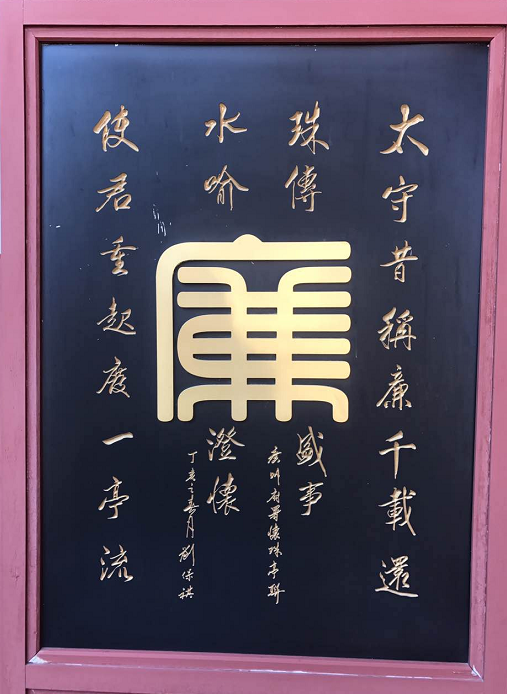 太守昔稱廉千載還
珠傳盛事
廉州府署還珠亭聯
廉
使君重起廢一亭流
水喻澄懷
丁亥之月劉保祺